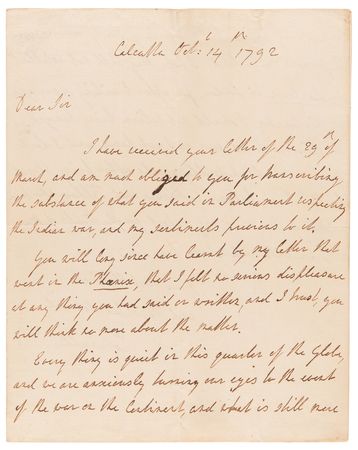 Calcutta Octr. 14th 1792
Dear Sir
I have received your letter of the 29th of
March, and am much obliged to you for transcribing
the substance of what you said in Parliament respecting
the Indian war, and my sentiments previous to it.
You will long since have learnt by my letter that
went in the Phoenix, that I felt no serious displeasure
at any thing you had said or written, and I trust, you
will think no more about the matter.
Every thing is quiet in this quarter of the Globe,
and we are anxiously turning our eyes to the event
of the war on the Continent, and what is still more